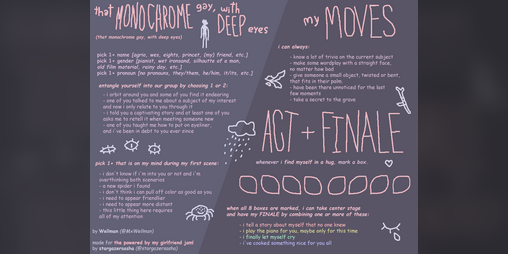 that MONOCHROME gay, with DEEP eyes
(that monochrome gay, with deep eyes)
pick 1+ name [agro, wes, eights, princet, (my) friend, etc.]
pick 1+ gender [pianist, wet transand, silhouette of a man,
old film material, rainy day, etc.]
pick 1+ pronoun [no pronouns, they/them, he/him, it/its, etc.]
entangle yourself into our group by choosing 1 or 2:
- i orbit around you and some of you find it endearing
- one of you talked to me about a subject of my interest
and now i only relate to you through it
- i told you a captivating story and at least one of you
asks me to retell it when meeting someone new
- one of you taught me how to put on eyeliner,
and i've been in debt to you ever since
pick 1+ that is on my mind during my first scene:
- i don't know if i'm into you or not and i'm
overthinking both scenarios
- a new spider i found
- i don't think i can pull off color as good as you
- i need to appear friendlier
- i need to appear more distant
- this little thing here requires
all of my attention
by Wellman (@MxWellman)
made for the powered by my girlfriend jam!
by stargazersasha (@stargazersasha)
my MOVES
i can always:
- know a lot of trivia on the current subject
- make some wordplay with a straight face,
no matter how bad
- give someone a small object, twisted or bent,
that fits in their palm
- have been there unnoticed for the last
few moments
- take a secret to the grave
ACT + FINALE
whenever i find myself in a hug, mark a box.
when all 8 boxes are marked, i can take center stage
and have my FINALE by combining one or more of these:
- i tell a story about myself that no one knew
- i play the piano for you. maybe only for this time
- i finally let myself cry
- i've cooked something nice for you all